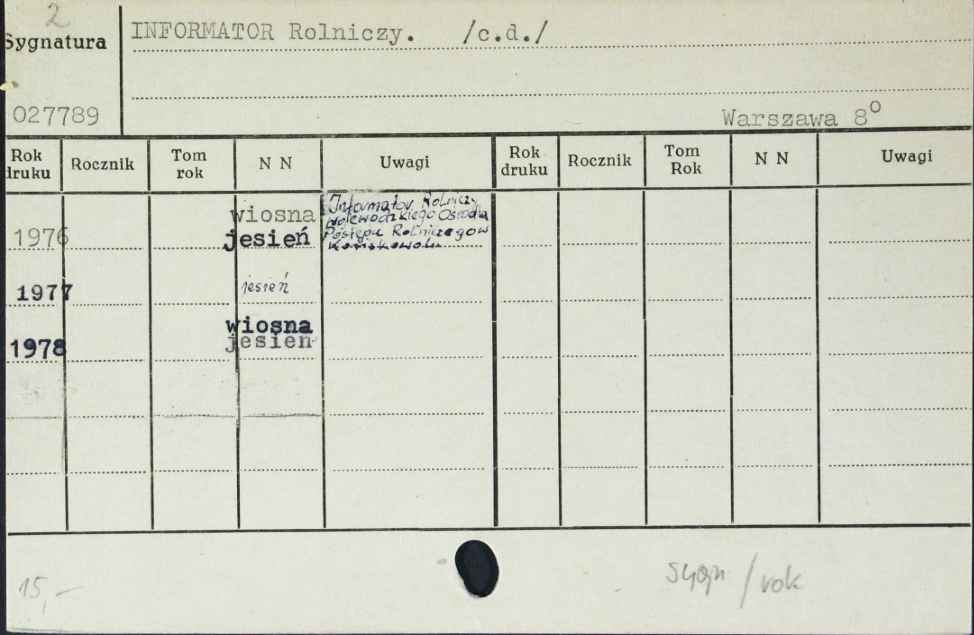 2
Sygnatura
INFORMATOR Rolniczy. /c.d./
027789
Warszawa 8⁰
Rok druku Rocznik Tom rok N N Uwagi Rok druku Rocznik Tom Rok N N Uwagi
1976 wiosna jesień
Informator Rolniczy
Wojewodzkiego Ośrodka
Postępu Rolniczego w
Końskowoli
1977 jesień
1978 wiosna
jesień
15,-
sygn / rok